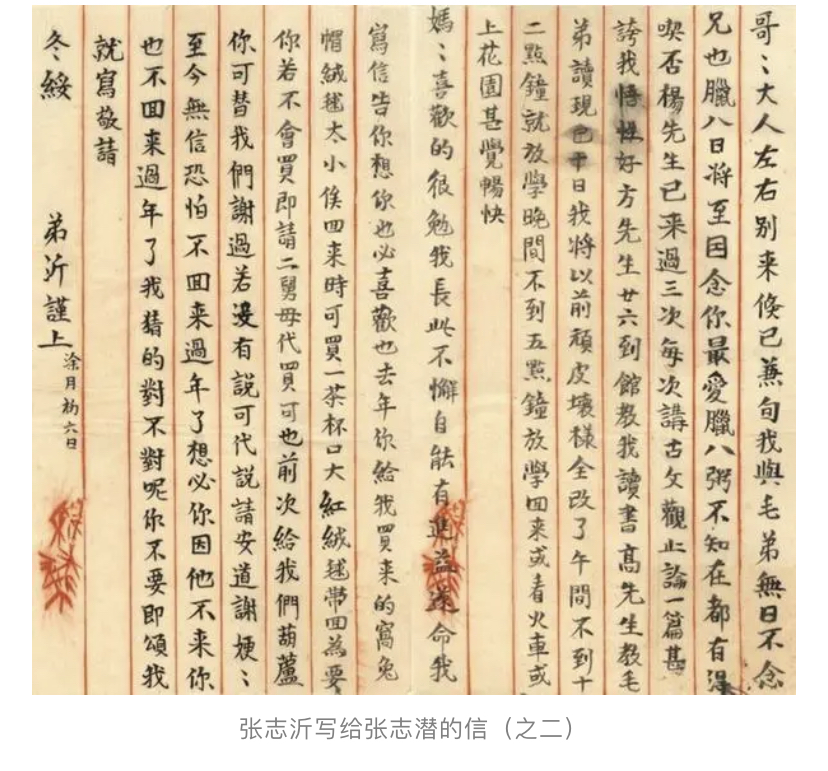 哥〻大人左右别来倏已兼旬我與毛弟無日不念
兄也臘八日将至因念你最爱臘八粥不知在都有得
喫否楊先生已来過三次每次講古文觀止論一篇甚
誇我悟性好方先生廿六到館教我讀書高先生教毛
弟讀現已十日我將以前頑皮壞樣全改了午間不到十
二點鐘就放學晚間不到五點鐘放學回来或看火車或
上花園甚覺暢快
媽〻喜歡的很勉我長此不懈自能有進益遂命我
寫信告你想你也必喜歡也去年你給我買来的窩兔
帽絨毬太小俟回来時可買一茶杯口大紅絨毬帶回為要
你若不會買即請二舅母代買可也前次給我們葫蘆
你可替我們謝過若沒有説可代説請安道謝娘〻
至今無信恐怕不回来過年了想必你因他不来你
也不回来過年了我猜的對不對呢你不要即頌我
就寫敬請
冬綏 弟沂謹上 涂月初六日
张志沂写给张志潜的信（之二）